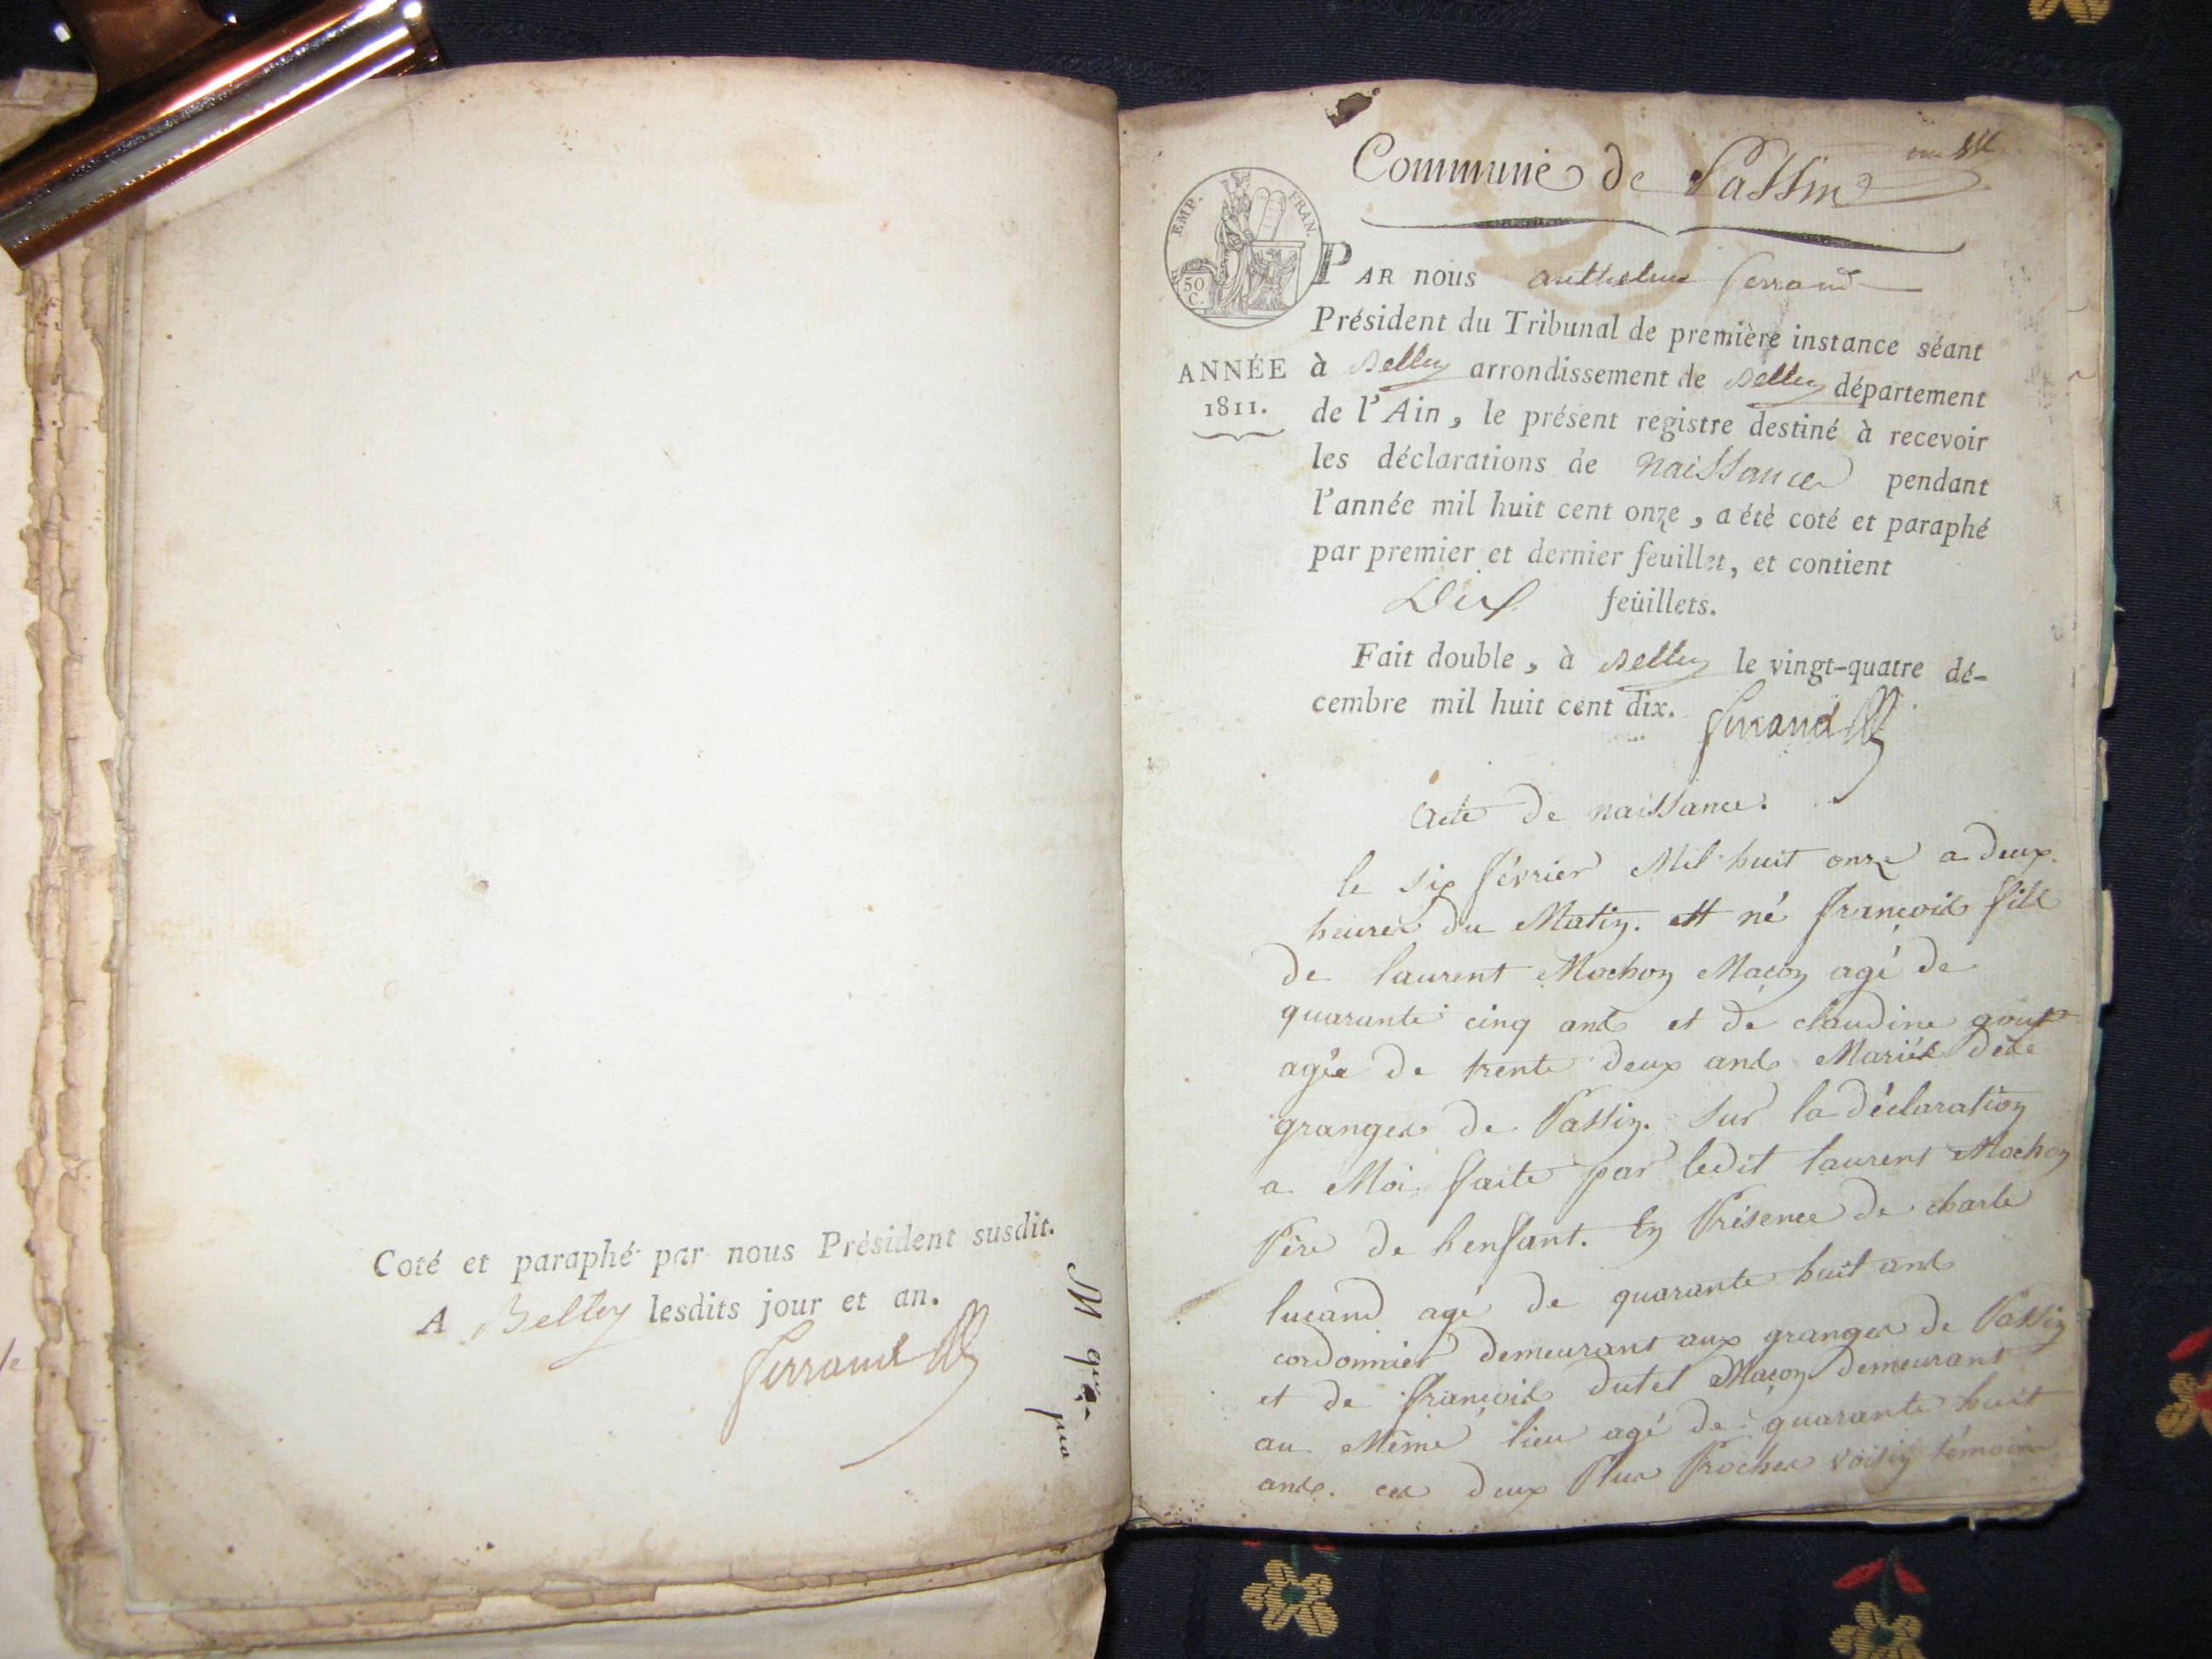 Coté et paraphé par nous Président susdit.
A Belley lesdits jour et an.
Ferrand
Commune de Passin
EMP. FRAN.
50 C.
ANNÉE
1811.
PAR nous anthelme ferrand
Président du Tribunal de première instance séant
à Belley arrondissement de Belley département
de l'Ain, le présent registre destiné à recevoir
les déclarations de naissance pendant
l'année mil huit cent onze, a été coté et paraphé
par premier et dernier feuillet, et contient
Dix feuillets.
Fait double, à Belley le vingt-quatre dé-
cembre mil huit cent dix.
ferrand
acte de naissance.
le six février Mil huit onze a deux
heures du Matin. est né françois fils
de laurent Mochon Maçon agé de
quarante cinq ans et de claudine gouj
agée de trente deux ans Mariés dede
granges de Passin. sur la déclaration
a Moi faite par ledit laurent Mochon
Père de henfant. En Présence de charle
lucand agé de quarante huit ans
cordonnier demeurant aux granges de Passin
et de françois dutel Maçon demeurant
au Même lieu agé de quarante huit
ans. ces deux Plus Proches voisin témoins